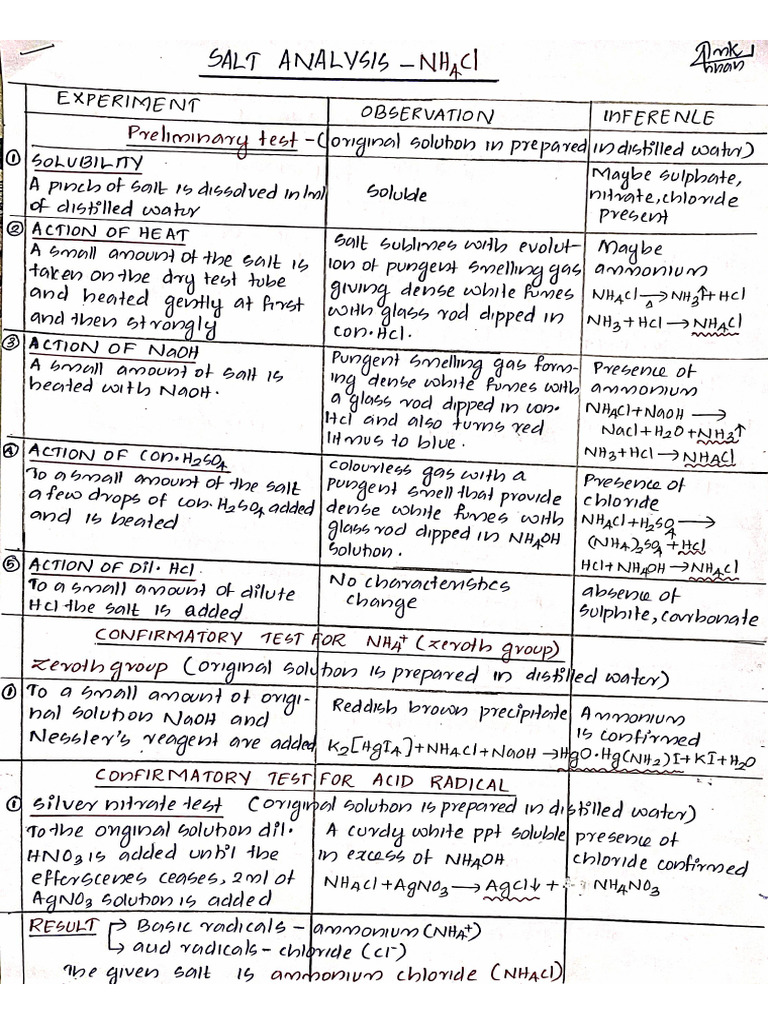 SALT ANALYSIS - NH4Cl
EXPERIMENT
OBSERVATION
INFERENCE
Preliminary test - (original solution in prepared in distilled water)
① SOLUBILITY
A pinch of salt is dissolved in 1ml
of distilled water
Soluble
Maybe sulphate,
nitrate, chloride
present
② ACTION OF HEAT
A small amount of the salt is
taken on the dry test tube
and heated gently at first
and then strongly
Salt sublimes with evolut-
ion of pungent smelling gas
giving dense white fumes
with glass rod dipped in
con.Hcl.
Maybe
ammonium
NH4Cl →Δ NH3↑ + HCl
NH3 + HCl → NH4Cl
③ ACTION OF NaOH
A small amount of salt is
heated with NaOH.
Pungent smelling gas form-
ing dense white fumes with
a glass rod dipped in con.
Hcl and also turns red
litmus to blue.
Presence of
ammonium
NH4Cl + NaOH →
Nacl + H2O + NH3↑
NH3 + HCl → NH4Cl
④ ACTION OF CON.H2SO4
To a small amount of the salt
a few drops of con. H2SO4 added
and is heated
colourless gas with a
pungent smell that provide
dense white fumes with
glass rod dipped in NH4OH
solution.
Presence of
chloride
NH4Cl + H2SO4 →
(NH4)2SO4 + HCl↑
HCl + NH4OH → NH4Cl
⑤ ACTION OF Dil. Hcl
To a small amount of dilute
Hcl the salt is added
No characteristics
change
absence of
sulphite, carbonate
CONFIRMATORY TEST FOR NH4+ (zeroth group)
zeroth group (original solution is prepared in distilled water)
① To a small amount of origi-
nal solution NaOH and
Nessler's reagent are added
Reddish brown precipitate
K2[HgI4] + NH4Cl + NaOH → HgO.Hg(NH2)I + KI + H2O
Ammonium
is confirmed
CONFIRMATORY TEST FOR ACID RADICAL
① silver nitrate test (original solution is prepared in distilled water)
To the original solution dil.
HNO3 is added until the
efferscenes ceases, 2ml of
AgNO3 solution is added
A curdy white ppt soluble
in excess of NH4OH
NH4Cl + AgNO3 → AgCl↓ + NH4NO3
presence of
chloride confirmed
RESULT → Basic radicals - ammonium (NH4+)
→ acid radicals - chloride (cl-)
The given salt is ammonium chloride (NH4cl)